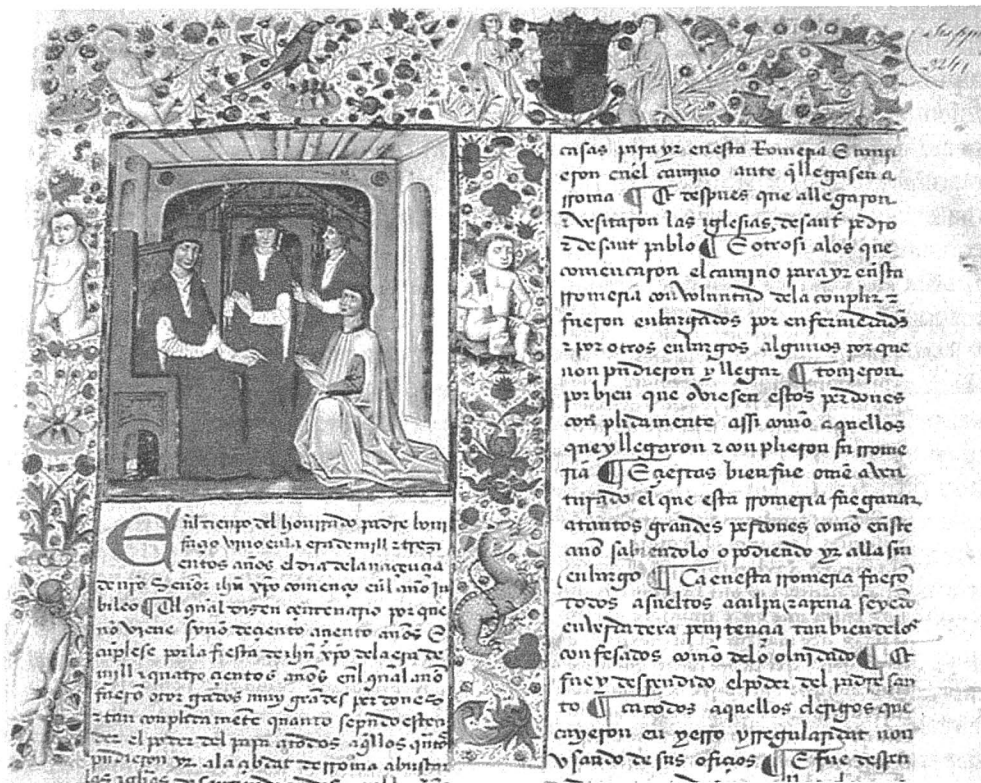 En̄l tienpo del honrrado padre boni
façio vino en la era de mill ⁊ trezi
entos años el dia dela naçençia
de nr̄o Señor ihū xp̄o començo en̄l año Ju
bileo ¶ El qual dizen çentenario por que
no viene syno de çiento a çiento años E
cūplese por la fiesta de ihū xp̄o dela era de
mill ⁊ quatro çientos años en̄l qual año
fuerō otorgados muy grandes perdones
⁊ tan conplida mēte quanto se pudo esten
der el poder del papa a todos aq̄llos q̄nto
pudieron yr ala çibdat de rroma a buscar
las
casas para yr en esta Romeria E
eron en̄l camino ante q̄ llegasen a
rroma ¶ Et despues que allegaron
⁊ vesitaron las iglesias de sant pedro
⁊ de sant pablo ¶ E otrosi alos que
començaron el camino para yr en̄sta
rromeria con voluntad dela conplir ⁊
fueron enbargados por enfermedads̄
⁊ por otros enbargos algunos por que
non pudieron y llegar ¶ touieron
por bien que oviesen estos perdones
conplidamente assi como aquellos
que y llegaron ⁊ conplieron su rrome
ria ¶ E çiertas bien fue ome aven
turado el que esta rromeria fue ganar
a tantos grandes perdones como en̄ste
ano sabiendolo o podiendo yr alla sin
enbargo ¶ Ca en esta rromeria fuerō
todos asueltos a culpa ⁊ a pena seyēdo
en verdadera penitençia tan bien delos
confesados como delo oluidado ¶ Et
fue y despendido el poder del padre san
to ¶ ca todos aquellos clerigos que
cayeron en yerro yrregularidat non
vsando de sus ofiçios ¶ E fue despen